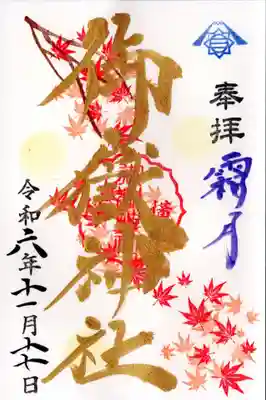 奉拝
霜月
御嶽神社
令和六年十一月十七日